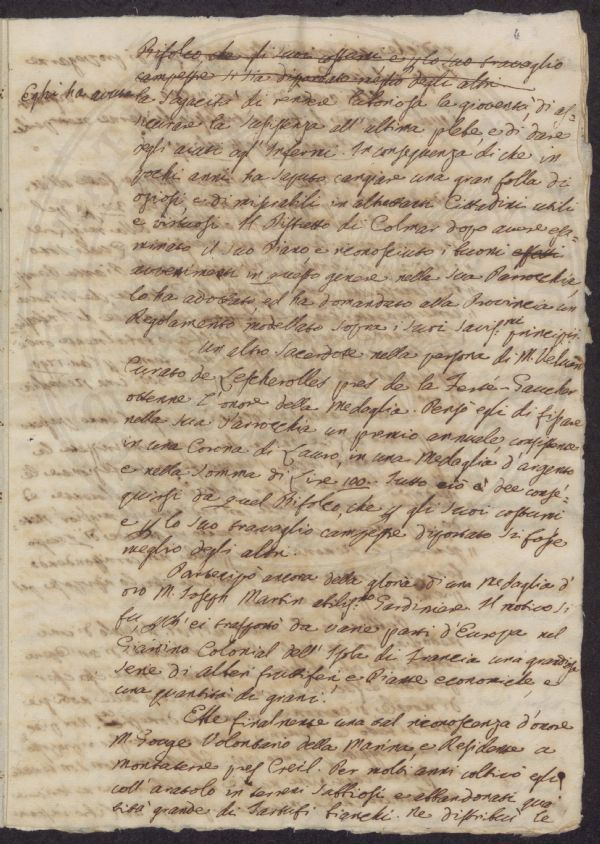 6
Bifolco che di suoi costumi e p lo suo travaglio
campestre si ha diportato meglio degli altri
Egli ha avuto
la capacità di rendere laboriosa la gioventù, di as-
sicurare la sussistenza all' ultima plebe, e di dare
degli aiuti agl' Infermi. In conseguenza di che in
pochi anni ha saputo cangiare una gran folla di
oziosi e di miserabili in altrettanti Cittadini utili
e virtuosi. Il Distretto di Colmar dopo avere esa-
minato il suo Piano e riconosciuto i buoni effetti
avvenimenti in questo genere nella sua Parrocchia
lo ha adottato, ed ha domandato alla Provincia un
Regolamento modellato sopra i suoi principj.
Un altro Sacerdote nella persona di M.
Curato de Lescherolles pres de la Ferte-Gaucher
ottenne l'onore della Medaglia. Pensò egli di fissare
nella sua Parrocchia un premio annuale consistente
in una Corona di Lauro, in una Medaglia d'argento
e nella somma di Lire 100. Tutto ciò dee conse-
guirsi da quel Bifolco, che p gli suoi costumi
e p lo suo travaglio campestre diportato si fosse
meglio degli altri.
Partecipò ancora della gloria di una Medaglia d'
oro M. Joseph Martin Giardiniere. Il motivo si
fu ei trasportò da varie parti d'Europa nel
Giardino Colonial dell' Isola di Francia una grandiosa
serie di alberi fruttiferi e Piante economiche e
una quantità di grani.
Ebbe finalmente una tal riconoscenza d'onore
M. Gouge Volontario della Marina e Residente a
Montataire pres Creil. Per molti anni coltivò egli
coll' aratolo in terreni sabbiosi e abbandonati quan-
tità grande di Tartufi bianchi. Ne distribuì le